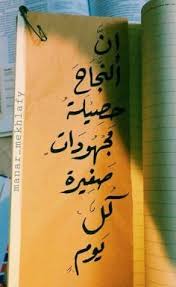 إنَّ
النجاحَ
حصيلةُ
مجهوداتٍ
صغيرة
كُلَّ
يومٍ
manar_mekhlafy